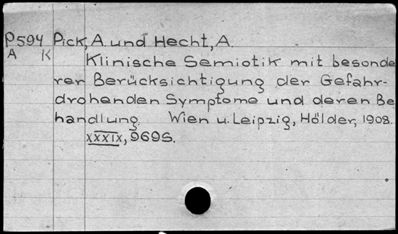 P594 Pick, A. und Hecht, A.
A K Klinische Semiotik mit besonde
rer Berücksichtigung der Gefahr-
drohenden Symptome und deren Be
handlung. Wien u. Leipzig, Hölder, 1908.
XXXIX, 969S.